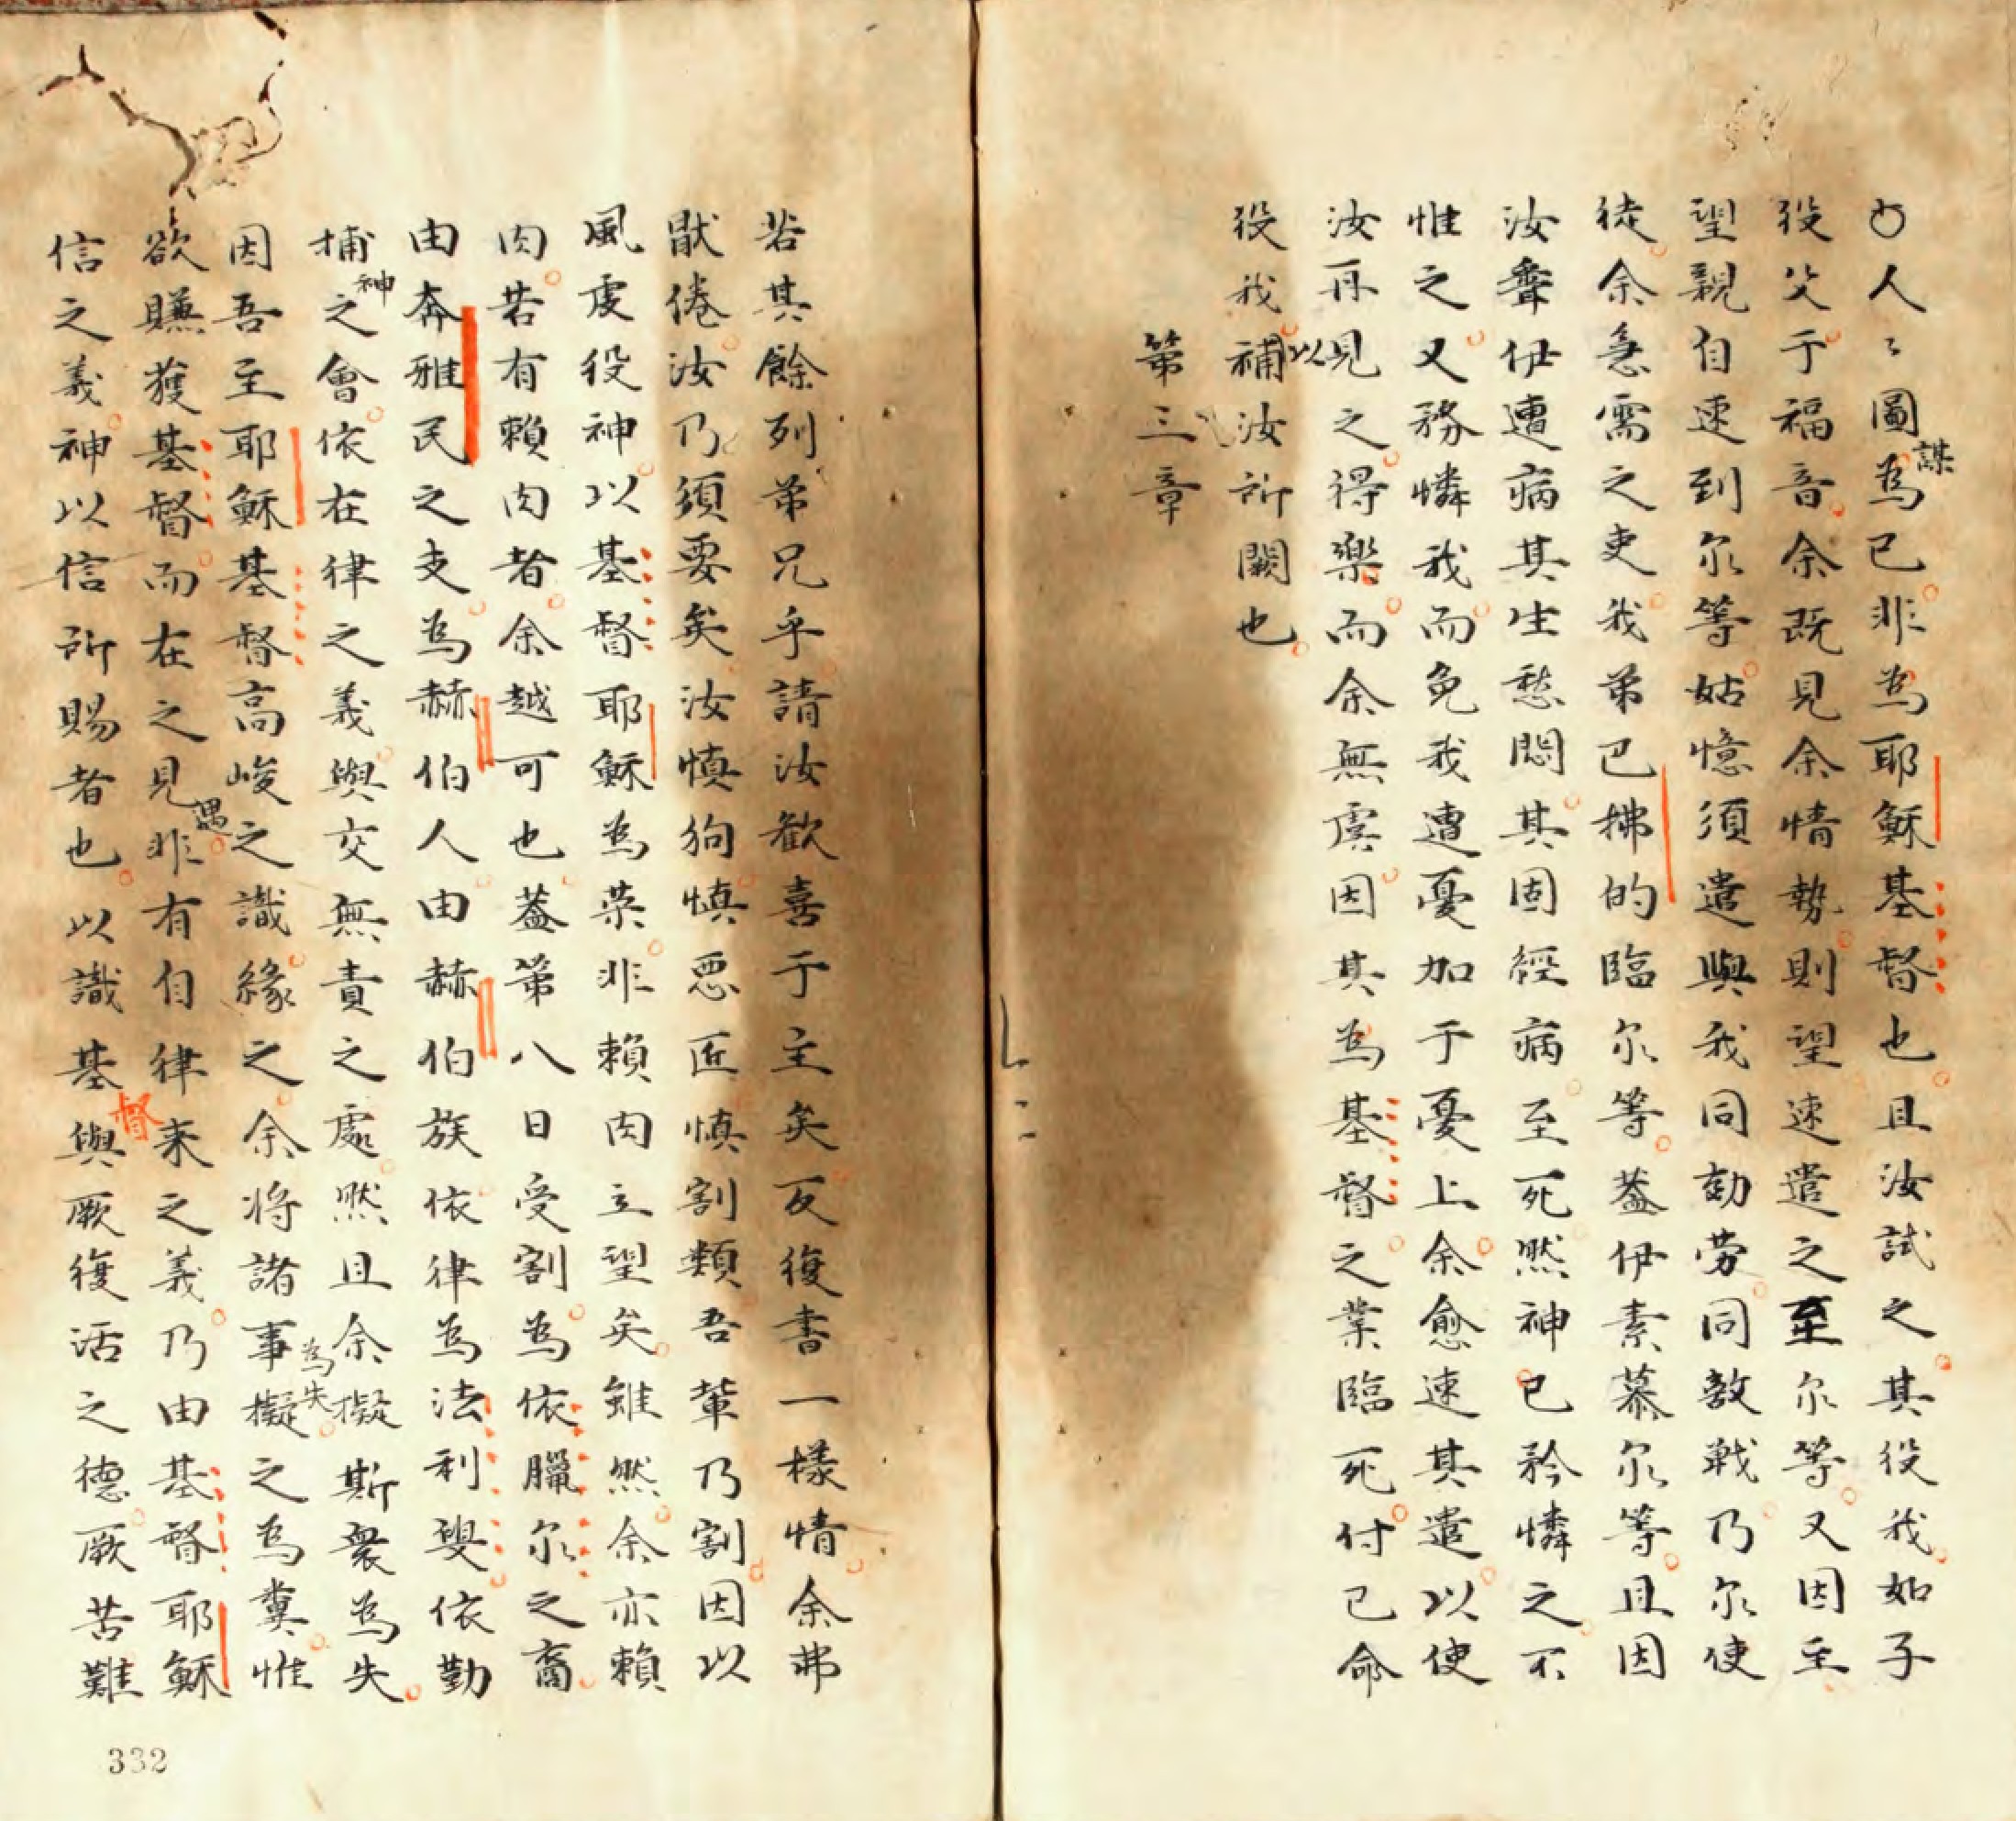 ○人〻圖謀為己非為耶穌基督也且汝試之其役我如子
役父于福音余既見余情勢則望速遣之至尔等又因主
望親自速到尔等姑憶須遣與我同劾劳同敌戦乃尔使
徒余急需之吏我弟巴拂的臨尔等蓋伊素慕尔等且因
汝聋伊遭病其生愁悶其固經病至死然神已矜憐之不
惟之又務憐我而免我遭憂加于憂上余愈速其遣以使
汝再見之得樂而余無虞因其為基督之業臨死付己命
役我以補汝所闕也
第三章
若其餘列弟兄乎請汝歓喜于主矣反復書一樣情余弗
猒倦汝乃須要矣汝慎狗慎惡匠慎割類吾輩乃割因以
風虔役神以基督耶穌為荣非賴肉立望矣雖然余亦賴
肉若有賴肉者余越可也蓋第八日受割為依臘尔之裔
由奔雅民之支為赫伯人由赫伯族依律為法利叟依勤
捕神之會依在律之義與交無責之處然且余擬斯衆為失
因吾至耶穌基督高峻之識緣之余将諸事擬為失之為糞惟
欲賺獲基督而在之見遇非有自律来之義乃由基督耶穌
信之義神以信所賜者也以識基督與厥復活之德厥苦難
332